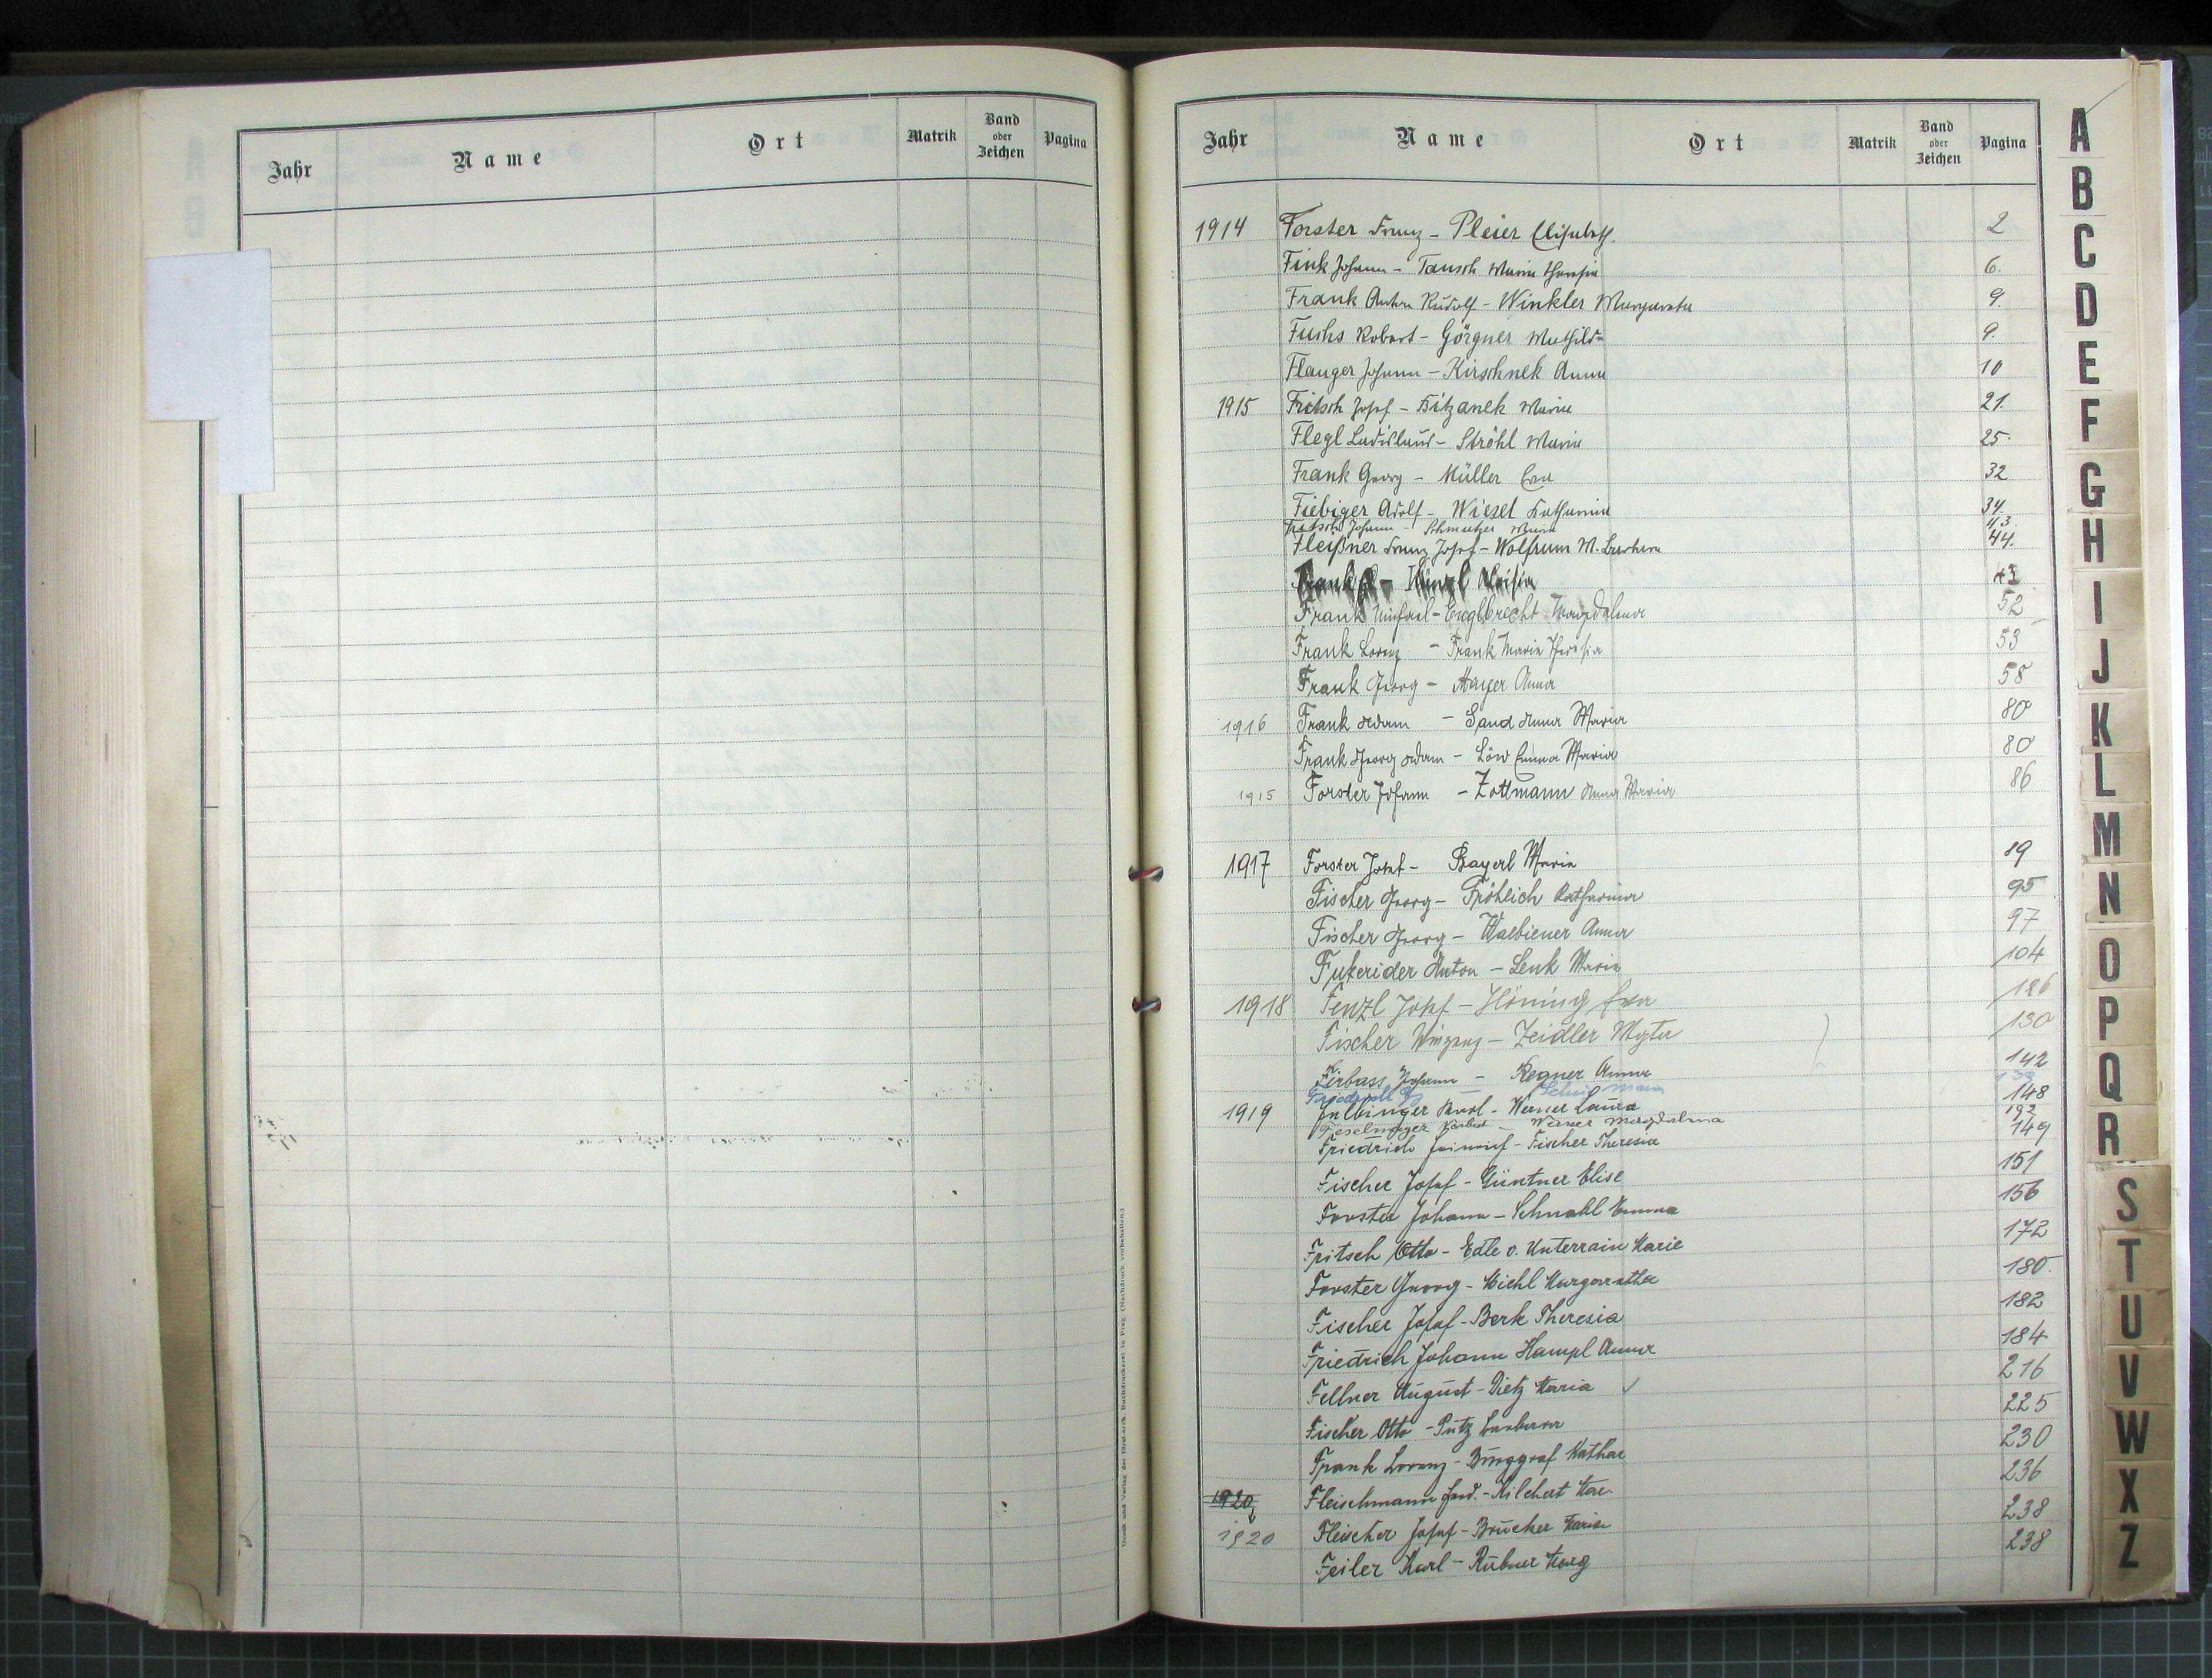 Jahr Name Ort Matrik Band oder Zeichen Pagina
Jahr Name Ort Matrik Band oder Zeichen Pagina
1914 Forster Franz - Pleier Elisabeth 2
Fink Johann - Tausch Maria Theresia 6.
Frank Anton Rudolf - Winkler Margareta 9.
Fuchs Robert - Görgner Mathilde 9.
Flauger Johann - Kirschnek Anna 10
1915 Fritsch Josef - Bitzanek Marie 21.
Flegl Ladislaus - Ströhl Maria 25.
Frank Georg - Müller Eva 32
Fiebiger Adolf - Wiesel Katharina 34.
Fritsch Johann - Schmutzer Maria 43.
Fleißner Franz Josef - Wolfrum M. Barbara 44.
Frank Michael - Englbrecht Magdalena 52
Frank Lorenz - Frank Maria Theresia 53
Frank Georg - Mayer Anna 58
1916 Frank Adam - Sand Anna Maria 80
Frank Georg Adam - Löw Emma Maria 80
1915 Forster Johann - Zottmann Anna Maria 86
1917 Forster Josef - Bayerl Maria 89
Fischer Georg - Fröhlich Katharina 95
Fischer Georg - Walbiener Anna 97
Fukerider Anton - Lenk Maria 104
1918 Fenzl Josef - Höning Eva 126
Fischer Wenzel - Zeidler Mgta 130
Ferbass Johann - Regner Anna 142
Friedrich
1919 Fulbinger Karl - Werner Laura 148
Werner Magdalena 193
Friedrich Heinrich - Fischer Theresia 149
Fischer Josef - Güntner Elise 151
Forster Johann - Schnabl Emma 156
Fritsch Otto - Edle v. Unterrain Marie 172
Forster Georg - Michl Margaretha 180.
Fischer Josef - Berk Theresia 182
Friedrich Johann Hampl Anna 184
Fellner August - Dietz Maria 216
Fischer Otto - Putz Barbara 225
Frank Lorenz - Burggraf Kathar 230
1920 Fleischmann Ferd. - Milchert Mar. 236
1920 Fleischer Josef - Brucher Maria 238
Feiler Karl - Rubner Marg 238
A
B
C
D
E
F
G
H
I
J
K
L
M
N
O
P
Q
R
S
T
U
V
W
X
Z